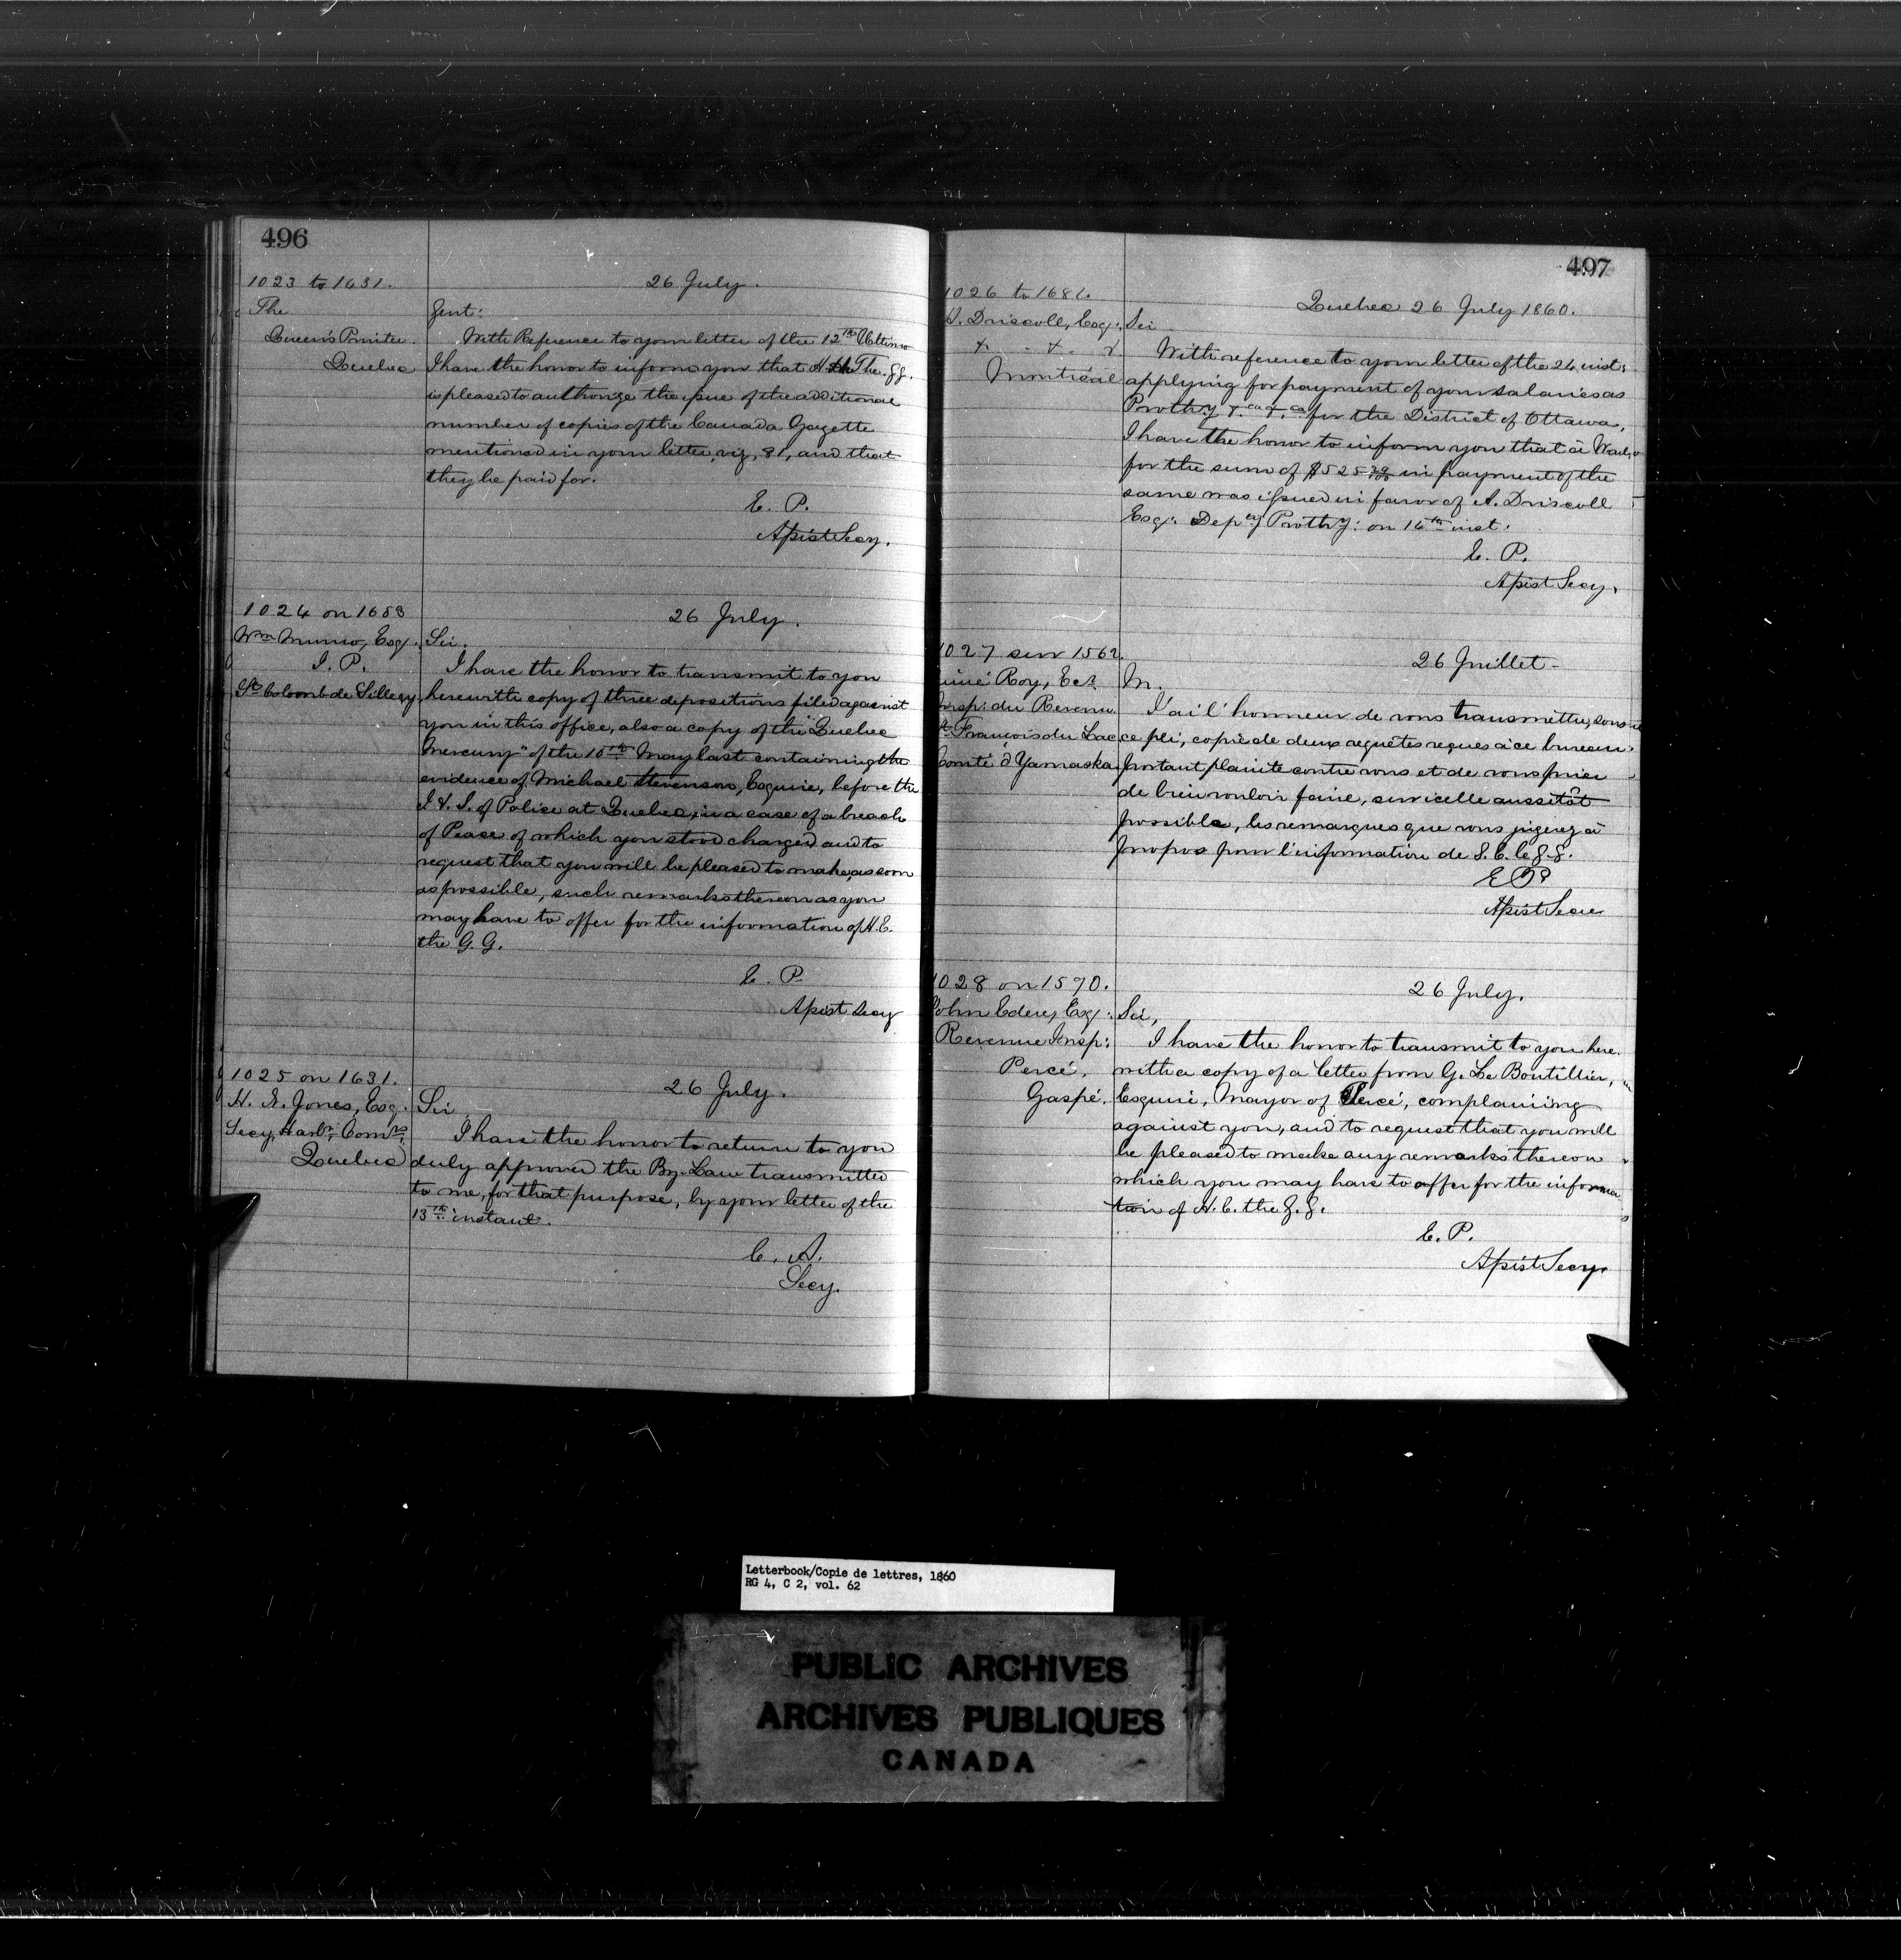 496
1023 to 1631.
The
Queen's Printer
Quebec
26 July.
Gent:
With Reference to your letter of the 12th Ultimo
I have the honor to inform you that H. The G.G.
is pleased to authorize the issue of the additional
number of copies of the Canada Gazette
mentioned in your letter, viz, 81, and that
they be paid for.
E. P.
Assist Secy.
1024 on 1653
Wm Munro, Esq.
J. P.
St Colomb de Sillery
26 July.
Sir.
I have the honor to transmit to you
herewith copy of three depositions filed against
you in this office, also a copy of the "Quebec
Mercury" of the 10th May last containing the
evidence of Michael Stevenson, Esquire, before the
I. & S. of Police at Quebec, in a case of a breach
of Peace of which you stood charged and to
request that you will be pleased to make, as soon
as possible, such remarks thereon as you
may have to offer for the information of H. E.
the G. G.
E. P.
Assist Secy
1025 on 1631.
H. N. Jones, Esq.
Secy, Harbr. Comrs.
Quebec
26 July.
Sir
I have the honor to return to you
duly approved the By-Law transmitted
to me, for that purpose, by your letter of the
13th instant.
C. A.
Secy.
497
1026 to 1681.
Driscoll, Esq.
Montreal
Quebec 26 July 1860.
Sir
With reference to your letter of the 24 inst:
applying for payment of your salaries as
Prothy. &ca &ca for the District of Ottawa,
I have the honor to inform you that a
for the sum of $525 in payment of the
same was issued in favor of A. Driscoll
Esq. Depy Prothy: on 16th inst.
E. P.
Assist Secy.
1027 sur 1562.
Roy, Ecr
Insp: du Revenu
St François du Lac
Comté d'Yamaska
26 Juillet -
M.
J'ai l'honneur de vous transmettre, sous
ce pli, copie de deux requêtes reçues à ce bureau
portant plainte contre vous et de vous prier
de bien vouloir faire, sur icelle aussitôt
possible, les remarques que vous jugerez à
propos pour l'information de S. E. le G. G.
E P
Assist Secre
1028 on 1570.
John Eden, Esq:
Revenue Insp:
Percé.
Gaspé.
26 July.
Sir,
I have the honor to transmit to you here
with a copy of a letter from G. Le Boutillier,
Esquire, Mayor of Percé, complaining
against you, and to request that you will
be pleased to make any remarks thereon
which you may have to offer for the informa
tion of H. E. the G. G.
E. P.
Assist Secy.
Letterbook/Copie de lettres, 1860
RG 4, C 2, vol. 62
PUBLIC ARCHIVES
ARCHIVES PUBLIQUES
CANADA